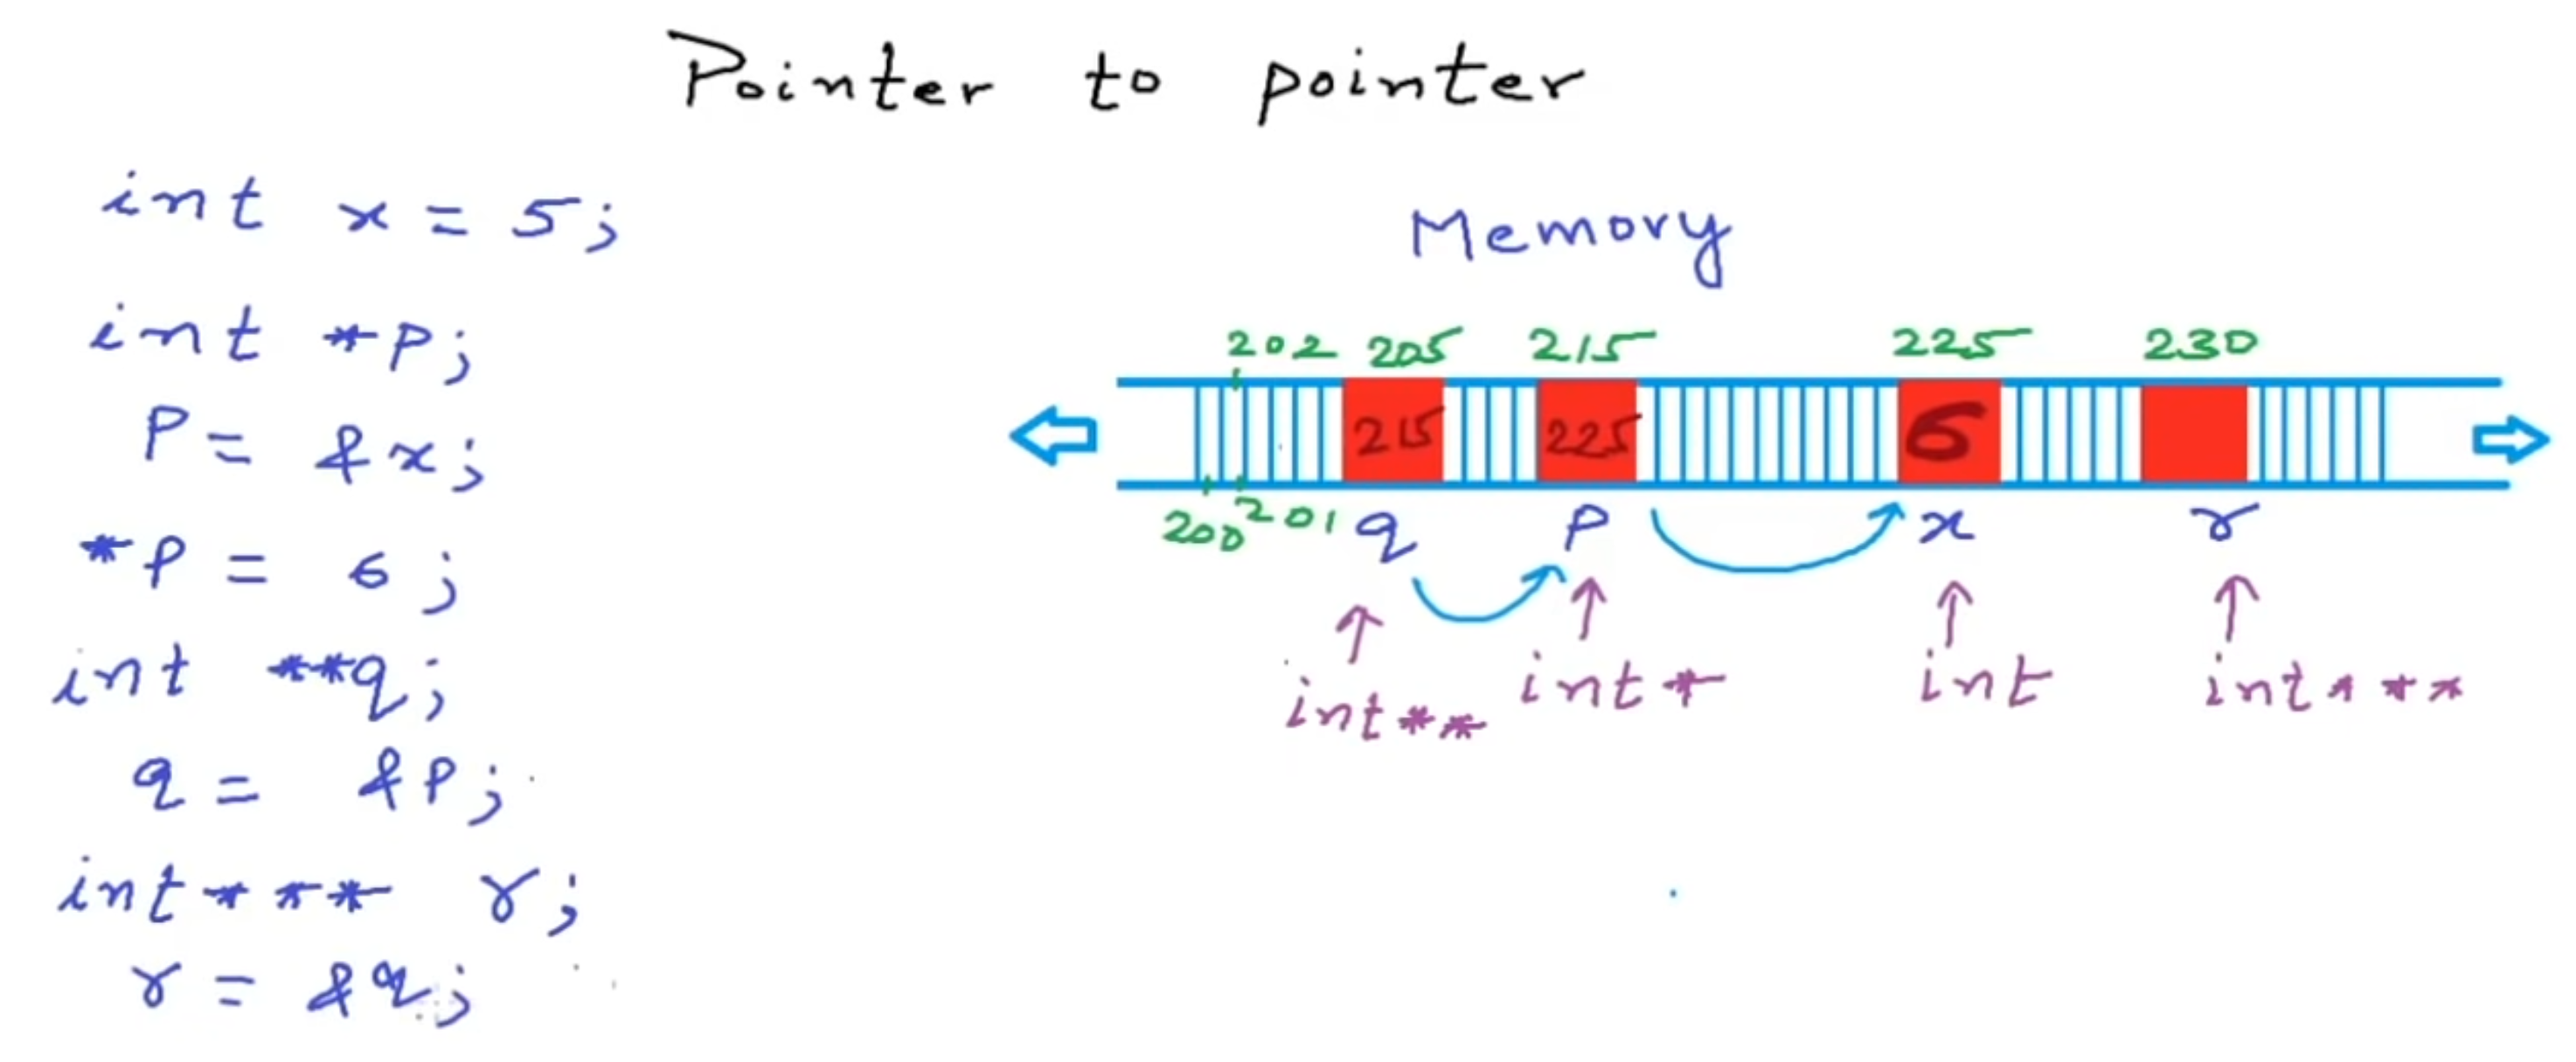 Pointer to pointer
int x = 5;
int *p;
P = &x;
*P = 6;
int **q;
q = &P;
int*** r;
r = &q;
Memory
202 205 215 225 230
215 225 6
200 201 q P x r
int** int* int int***